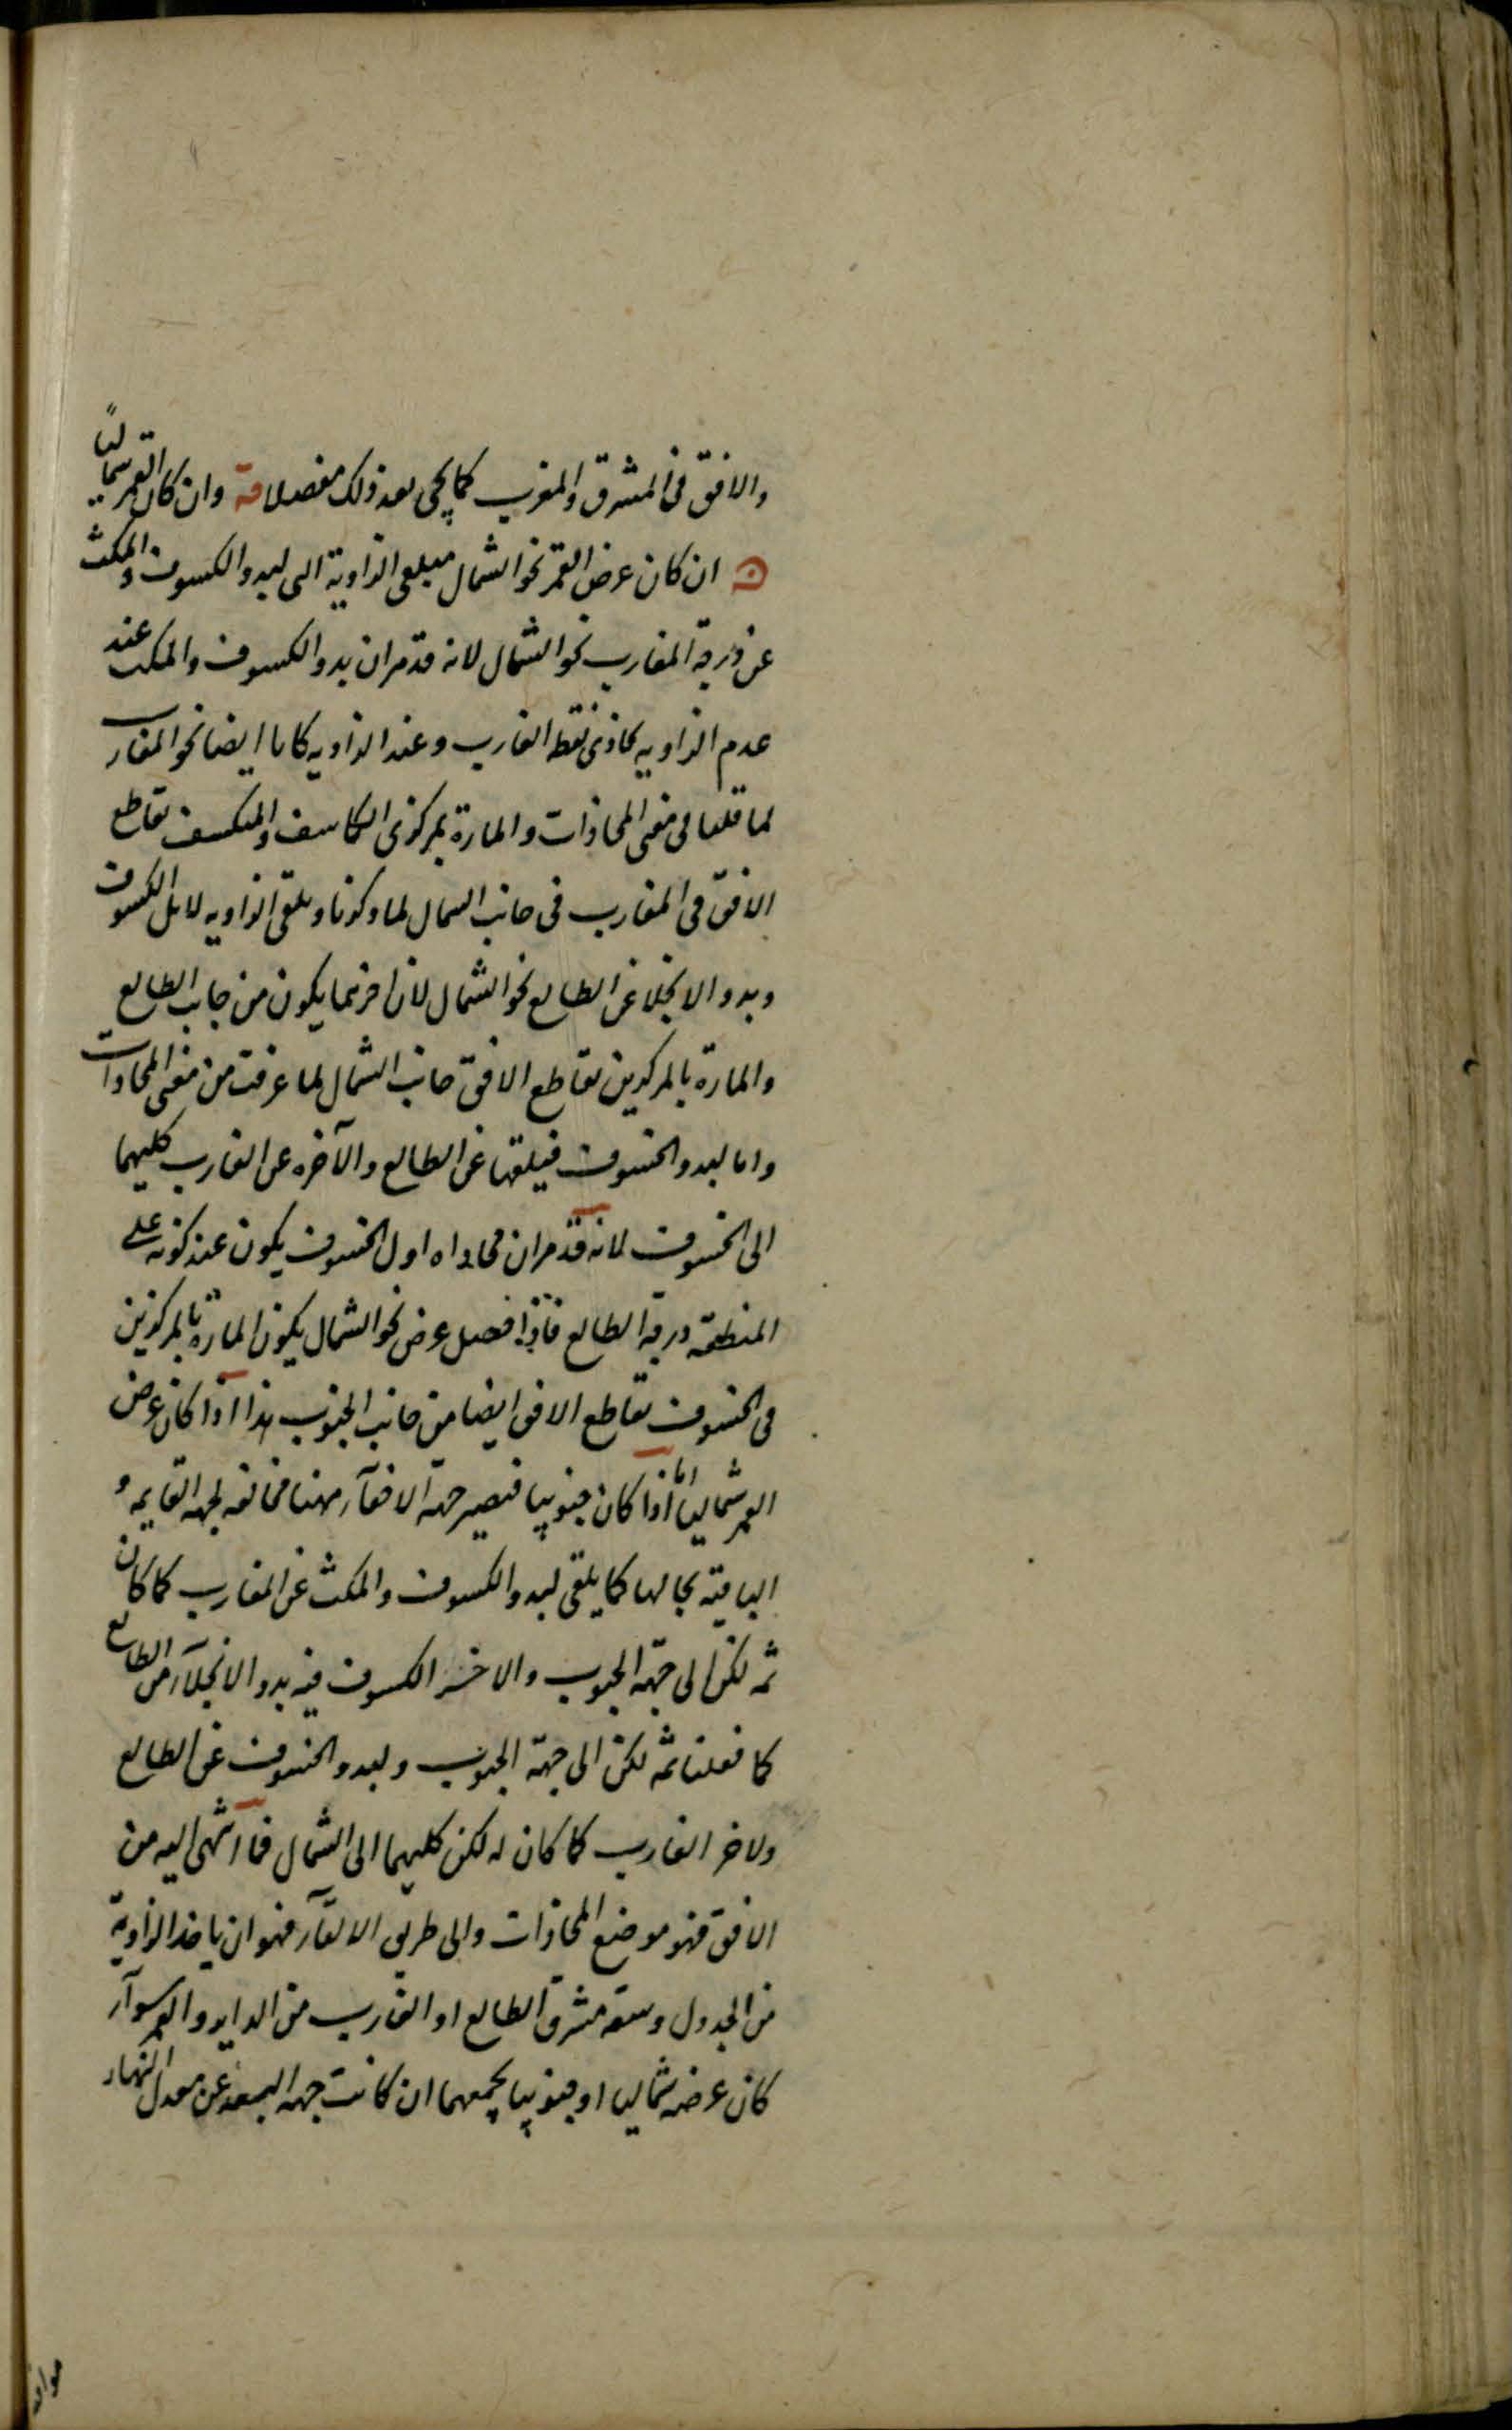 والافق فى المشرق والمغرب كما يجى بعد ذلك مفصلا قه وان كان القمر شماليا
ان كان عرض القمر نحو الشمال فيلقى الزاوية التى لبدو الكسوف والمكث
عن درجة المغارب نحو الشمال لانه قد مر ان بدو الكسوف والمكث عند
عدم الزاويه يحاذى نقطه الغارب وعند الزاويه كانا ايضا نحو المغارب
لما قلنا فى معنى المحاذات والمارة بمركزى الكاسف والمنكسف تقاطع
الافق فى المغارب فى جانب الشمال لما ذكرنا ويلقى الزاويه الكسوف
وبدو الانجلا عن الطالع نحو الشمال لان اخرهما يكون من جانب الطالع
والمارة بالمركزين تقاطع الافق جانب الشمال لما عرفت من معنى المحاذات
واما لبدو الخسوف فيلقها عن الطالع والآخره عن الغارب كليهما
الى الخسوف لانه قد مر ان محاذاه اول الخسوف يكون عند كونه على
المنطقة درجة الطالع فاذا فصل عرض نحو الشمال يكون المارة بالمركزين
فى الخسوف تقاطع الافق ايضا من جانب الجنوب هذا اذا كان عرض
القمر شماليا اما اذا كان جنوبيا فتصير جهة الافقآر مهنا مخالفه لجهه القايمه و
الباقية بحالها كما يلقى لبدو الكسوف والمكث عن المغارب كما كان
ثمه لكن الى جهة الجنوب والاخر الكسوف فيه بدو الانجلآر من الطالع
كما فعلنا ثمه لكن الى جهة الجنوب ولبدو الخسوف عن الطالع
ولاخر الغارب كما كان له لكن كليهما الى الشمال فما انتهى اليه من
الافق فهو موضع المحاذات والى طريق الالقآر فهو ان ياخذ الزاوية
من الجدول وسعة مشرق الطالع او الغارب من الداير والقمر سوآر
كان عرضه شماليا او جنوبيا يجمعهما ان كانت جهه البعد عن معدل النهار